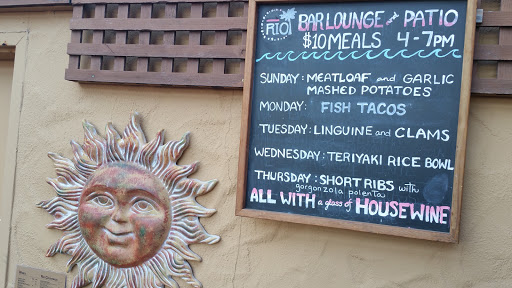 RIO
BAR LOUNGE and PATIO
$10 MEALS 4-7PM
SUNDAY: MEATLOAF and GARLIC
MASHED POTATOES
MONDAY: FISH TACOS
TUESDAY: LINGUINE and CLAMS
WEDNESDAY: TERIYAKI RICE BOWL
THURSDAY: SHORT RIBS with
gorgonzola polenta
ALL WITH a glass of HOUSEWINE